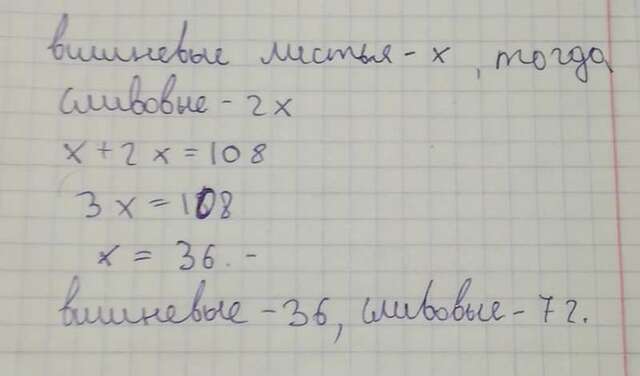 вишневые листья - х, тогда
сливовые - 2х
х + 2х = 108
3х = 108
х = 36. -
вишневые - 36, сливовые - 72.